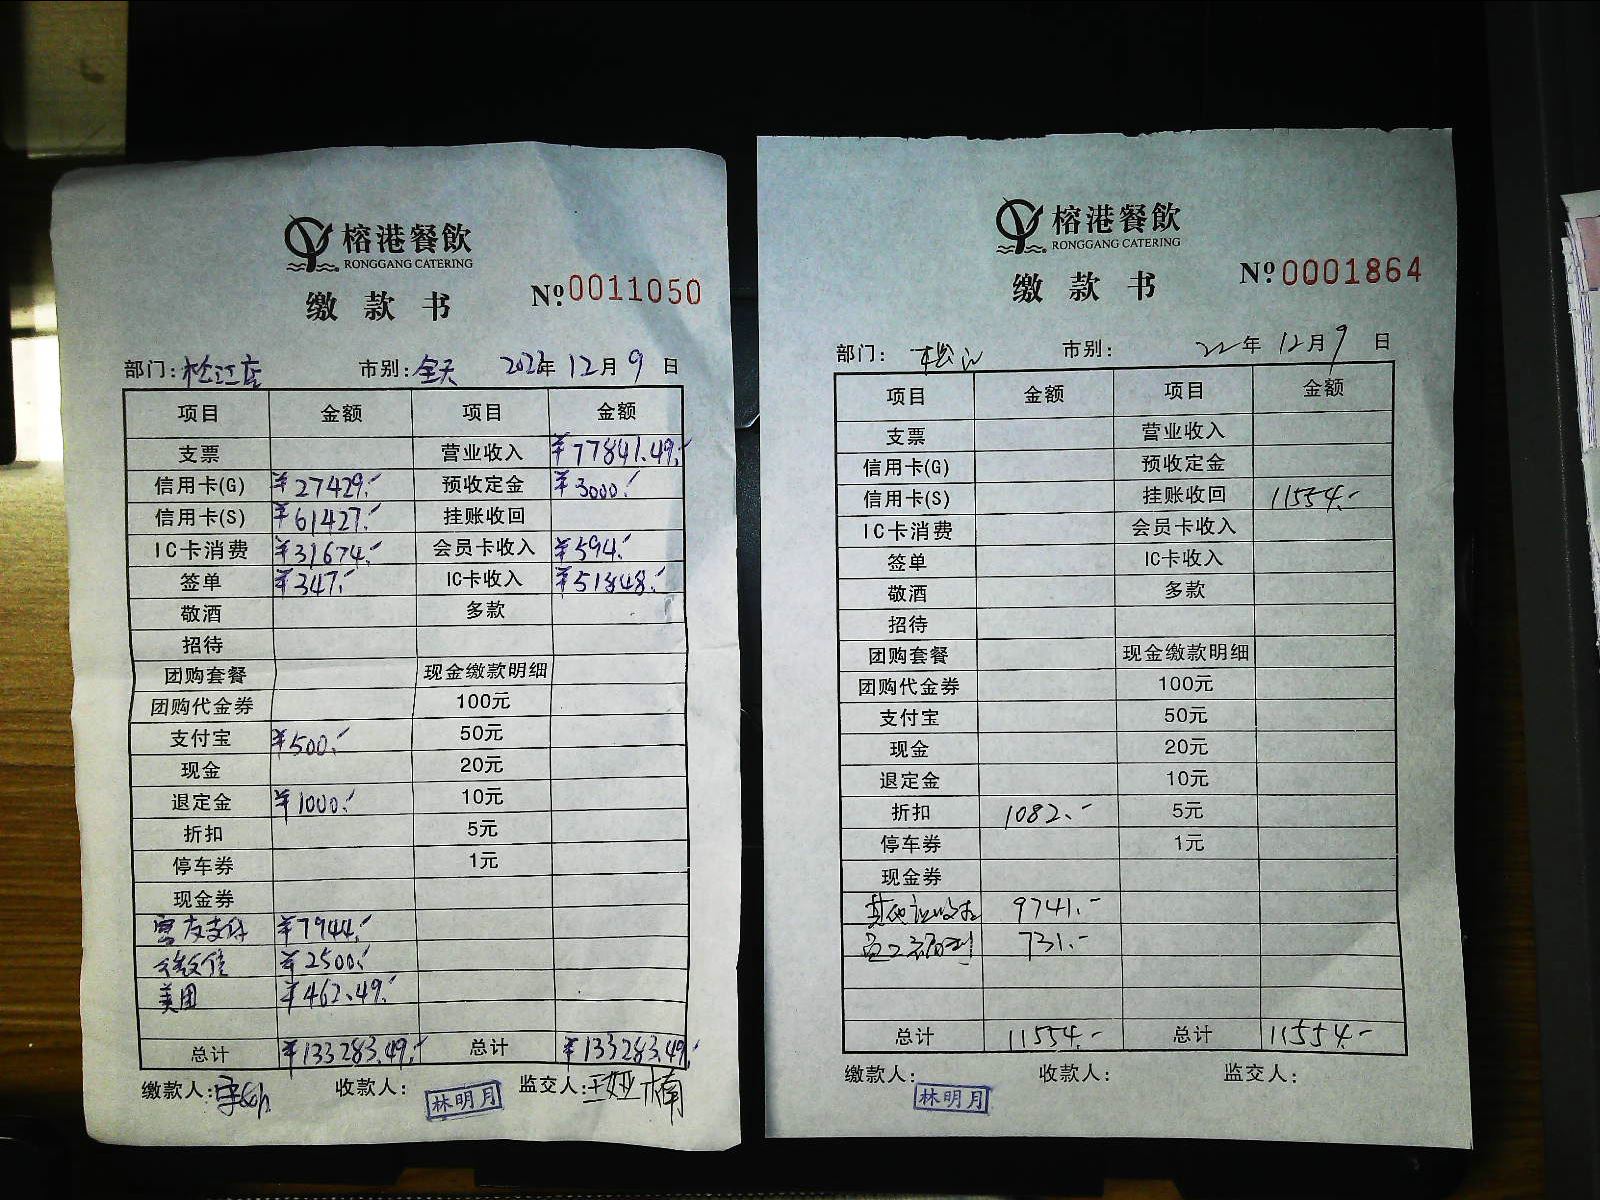 榕港餐飲
RONGGANG CATERING
缴款书 №0011050
部门:松江店 市别:全天 2022年12月9日
项目 金额 项目 金额
支票 营业收入 ¥77841.49.-
信用卡(G) ¥27429.- 预收定金 ¥3000.-
信用卡(S) ¥61427.- 挂账收回
IC卡消费 ¥31674.- 会员卡收入 ¥594.-
签单 ¥347.- IC卡收入 ¥51848.-
敬酒 多款
招待
团购套餐 现金缴款明细
团购代金券 100元
支付宝 ¥500.- 50元
现金 20元
退定金 ¥1000.- 10元
折扣 5元
停车券 1元
现金券
支付 ¥7944.-
微信 ¥2500.-
美团 ¥462.49.-
总计 ¥133283.49.- 总计 ¥133283.49.-
缴款人: 收款人: 林明月 监交人:王娅楠
榕港餐飲
RONGGANG CATERING
缴款书 №0001864
部门: 松江 市别: 22年12月9日
项目 金额 项目 金额
支票 营业收入
信用卡(G) 预收定金
信用卡(S) 挂账收回 11554.-
IC卡消费 会员卡收入
签单 IC卡收入
敬酒 多款
招待
团购套餐 现金缴款明细
团购代金券 100元
支付宝 50元
现金 20元
退定金 10元
折扣 1082.- 5元
停车券 1元
现金券
其他应收款 9741.-
员工福利 731.-
总计 11554.- 总计 11554.-
缴款人: 林明月 收款人: 监交人: